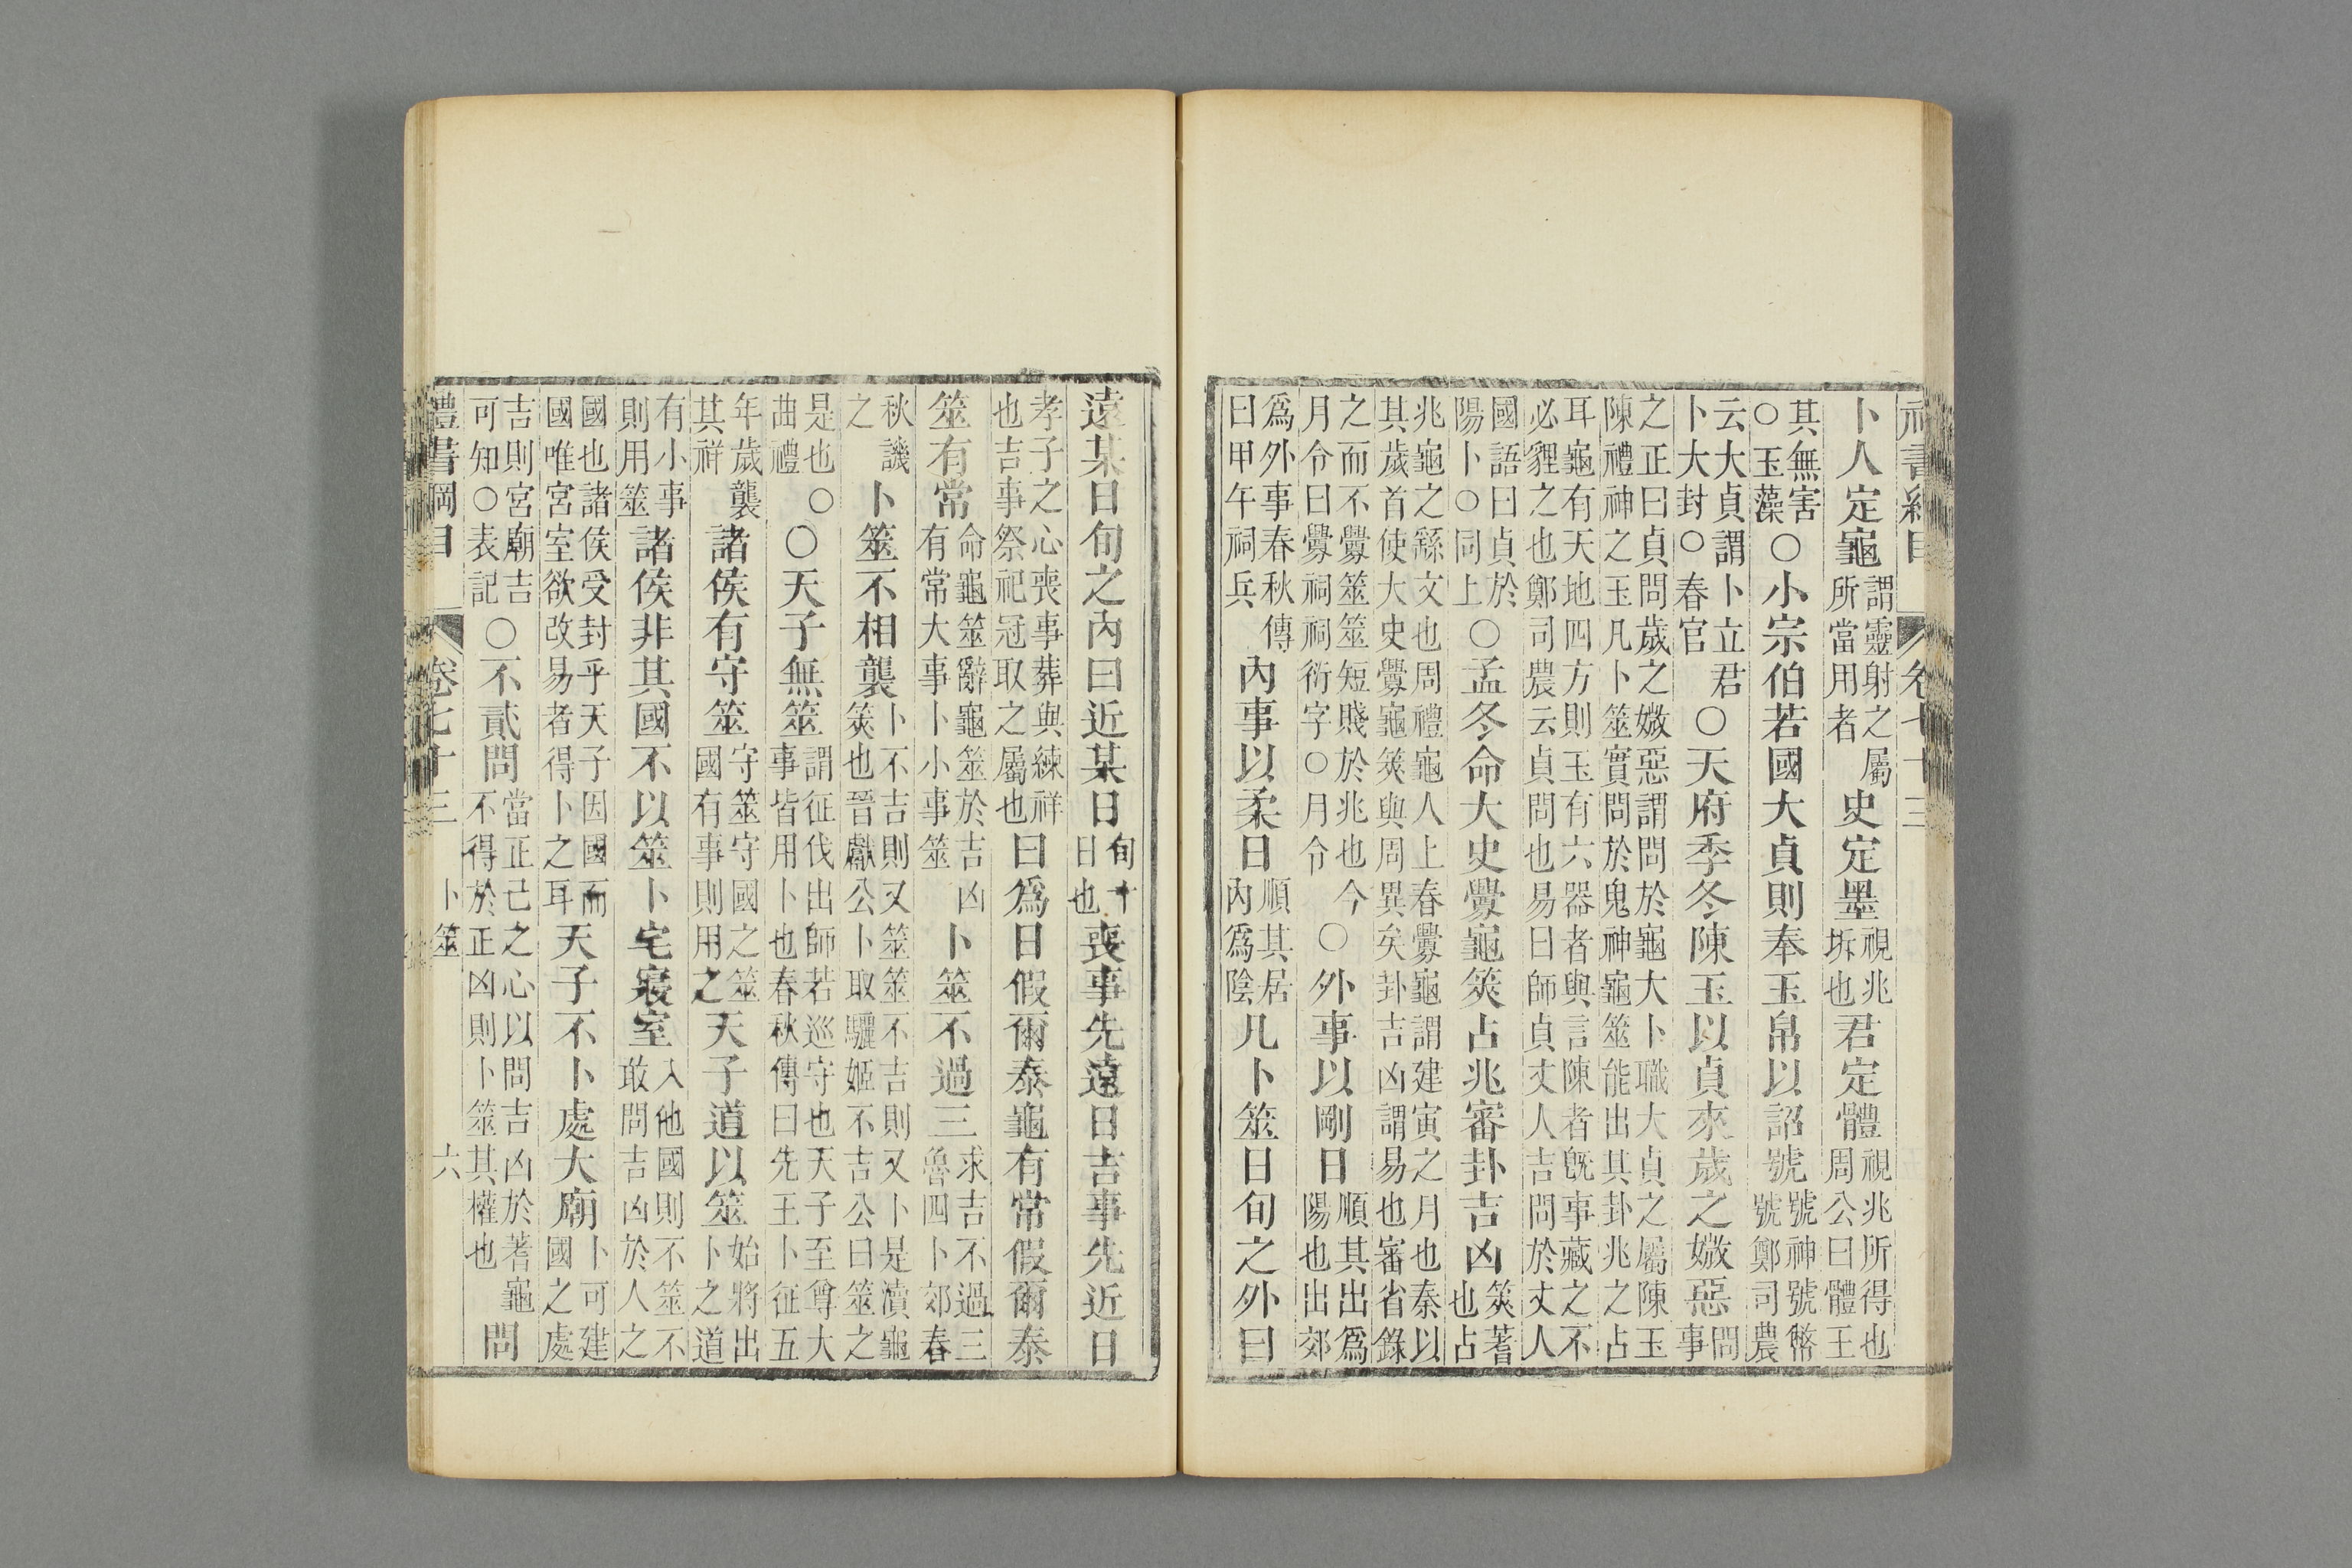 禮書綱目 卷七十三
卜人定龜謂靈射之屬所當用者史定墨視兆坼也君定體視兆所得也周公曰體王
其無害○玉藻○小宗伯若國大貞則奉玉帛以詔號號神號幣號鄭司農
云大貞謂卜立君卜大封○春官○天府季冬陳玉以貞來歲之媺惡問事
之正曰貞問歲之媺惡謂問於龜大卜職大貞之屬陳玉陳禮神之玉凡卜筮實問於鬼神龜筮能出其卦兆之占
耳龜有天地四方則玉有六器者與言陳者旣事藏之不必貍之也鄭司農云貞問也易曰師貞丈人吉問於丈人
國語曰貞於陽卜○同上○孟冬命大史釁龜筴占兆審卦吉凶筴蓍也占
兆龜之繇文也周禮龜人上春釁龜謂建寅之月也秦以其歲首使大史釁龜筴與周異矣卦吉凶謂易也審省錄
之而不釁筮筮短賤於兆也今月令曰釁祠祠衍字○月令○外事以剛日順其出爲陽也出郊
爲外事春秋傳曰甲午祠兵內事以柔日順其居內爲陰凡卜筮日旬之外曰
遠某日旬之內曰近某日旬十日也喪事先遠日吉事先近日
孝子之心喪事葬與練祥也吉事祭祀冠取之屬也曰爲日假爾泰龜有常假爾泰
筮有常命龜筮辭龜筮於吉凶有常大事卜小事筮卜筮不過三求吉不過三魯四卜郊春
秋譏之卜筮不相襲卜不吉則又筮筮不吉則又卜是瀆龜筴也晉獻公卜取驪姬不吉公曰筮之
是也○曲禮○天子無筮謂征伐出師若巡守也天子至尊大事皆用卜也春秋傳曰先王卜征五
年歲襲其祥諸侯有守筮守筮守國之筮國有事則用之天子道以筮始將出卜之道
有小事則用筮諸侯非其國不以筮卜宅寢室入他國則不筮不敢問吉凶於人之
國也諸侯受封乎天子因國而國唯宮室欲改易者得卜之耳天子不卜處大廟卜可建國之處
吉則宮廟吉可知○表記○不貳問當正己之心以問吉凶於蓍龜不得於正凶則卜筮其權也問
禮書綱目 卷七十三 卜筮 六